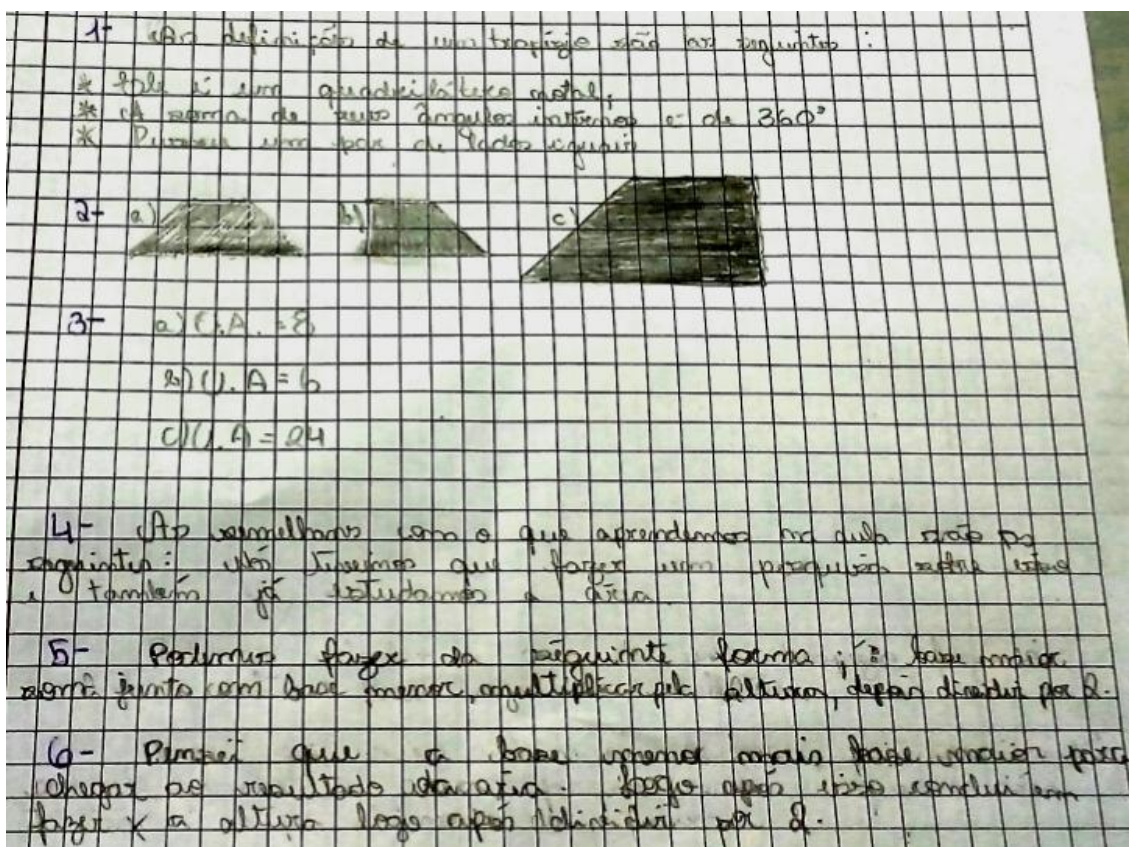 1- As definição de um trapézio são as seguintes :
* Ele é um quadrilátero notal;
* A soma de seus ângulos internos é de 360°
* Possuem um par de lados iguais
2- a) b) c)
3- a) U.A. = 8
b) U.A = 6
c) U.A = 24
4- As semelhans com o que aprendemos na aula são as
seguintes: nós tivemos que fazer um pesquisa sobre isso
e também já estudamos a área.
5- Podemos fazer da seguinte forma ; : base maior
soma junto com base menor, multiplicar pela altura, depois dividir por 2.
6- Pensei que a base menor mais base maior para
chegar ao resultado da area. Logo após isso conclui em
fazer x a altura logo após dividir por 2.